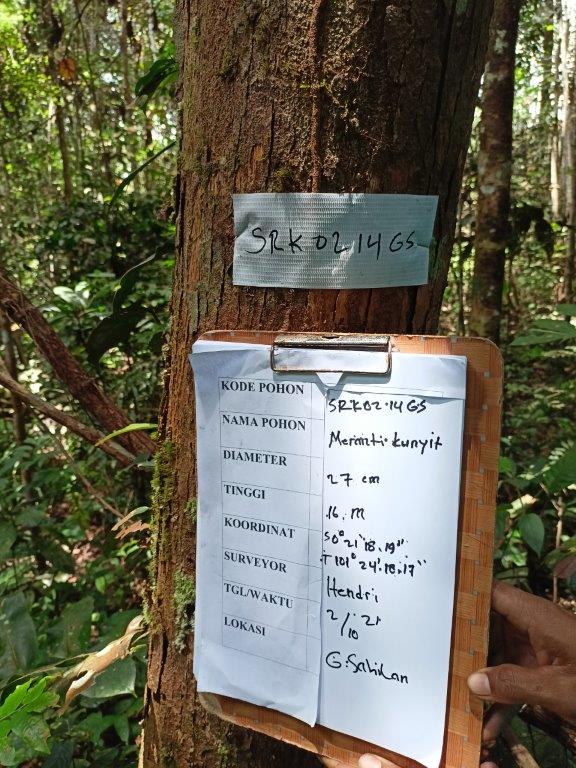 SRK 02.14 GS
KODE POHON SRK02.14GS
NAMA POHON Meranti kunyit
DIAMETER 27 cm
TINGGI 16. m
KOORDINAT S0° 21" 18.19"
T 101° 24' 18.17"
SURVEYOR Hendri
TGL/WAKTU 2/10 21
LOKASI G. Sahilan